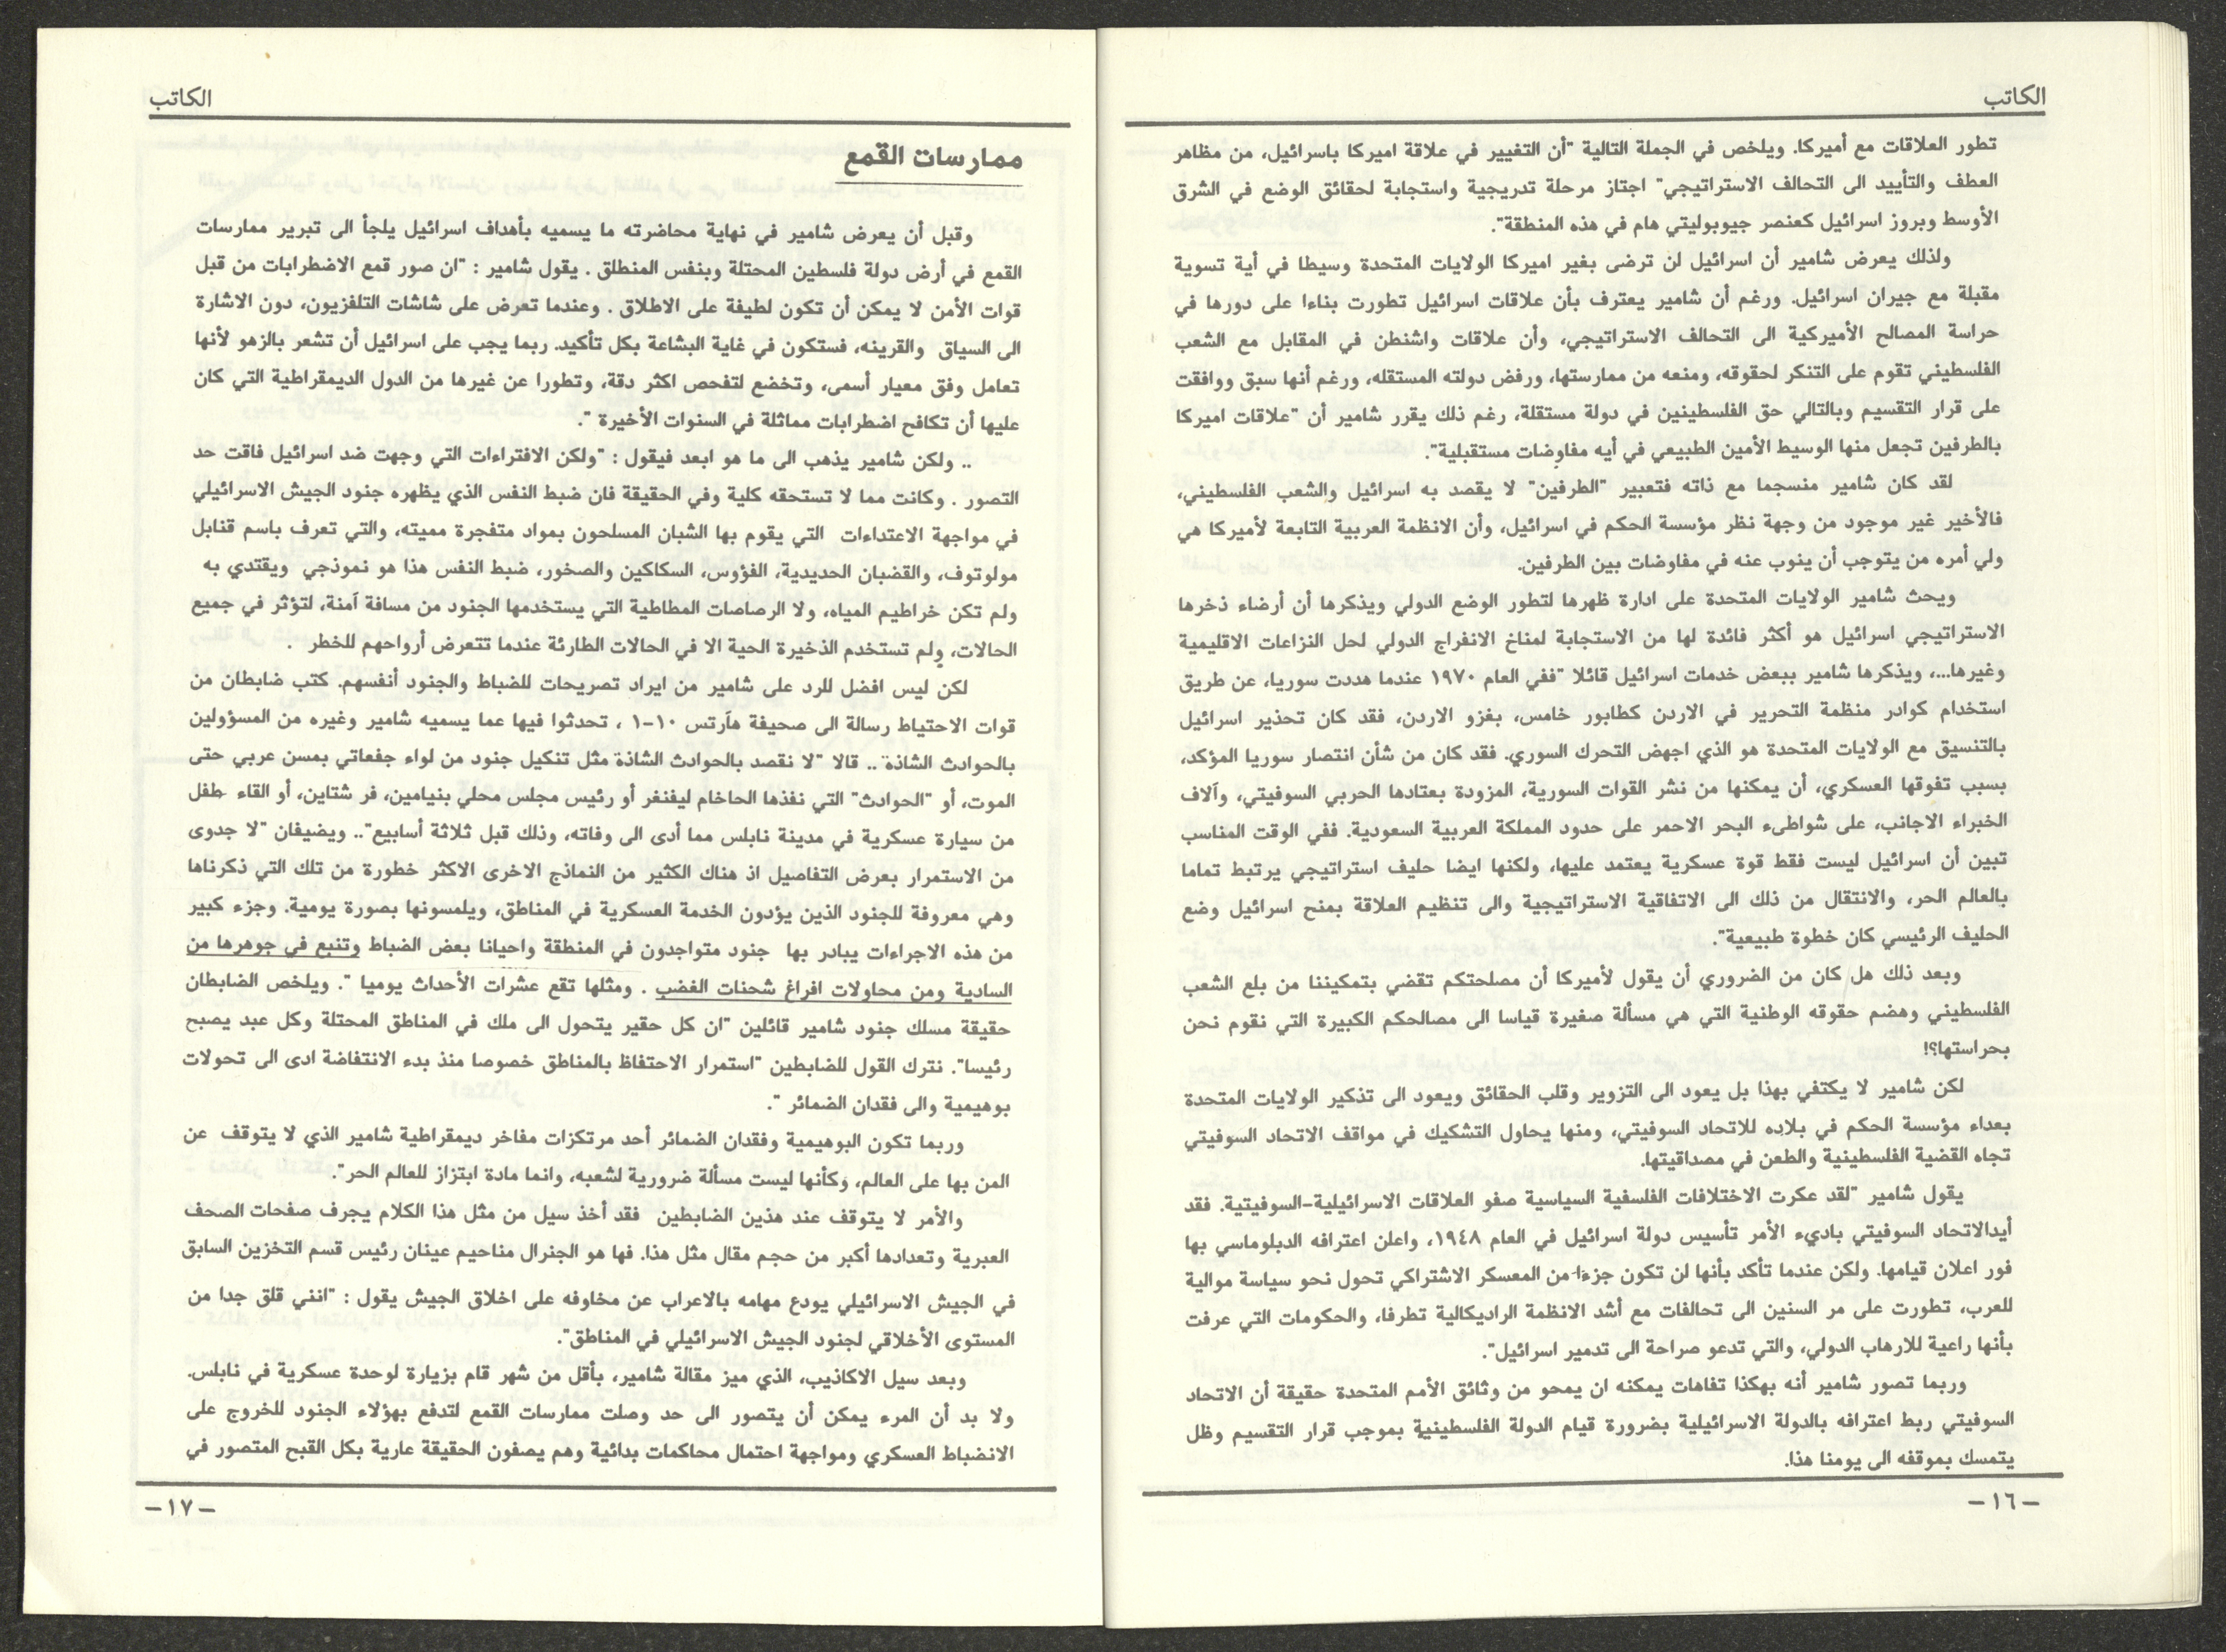 الكاتب
تطور العلاقات مع أميركا. ويلخص في الجملة التالية "أن التغيير في علاقة اميركا باسرائيل، من مظاهر
العطف والتأييد الى التحالف الاستراتيجي" اجتاز مرحلة تدريجية واستجابة لحقائق الوضع في الشرق
الأوسط وبروز اسرائيل كعنصر جيوبوليتي هام في هذه المنطقة".
ولذلك يعرض شامير أن اسرائيل لن ترضى بغير اميركا الولايات المتحدة وسيطا في أية تسوية
مقبلة مع جيران اسرائيل. ورغم أن شامير يعترف بأن علاقات اسرائيل تطورت بناءا على دورها في
حراسة المصالح الأميركية الى التحالف الاستراتيجي، وأن علاقات واشنطن في المقابل مع الشعب
الفلسطيني تقوم على التنكر لحقوقه، ومنعه من ممارستها، ورفض دولته المستقله، ورغم أنها سبق ووافقت
على قرار التقسيم وبالتالي حق الفلسطينين في دولة مستقلة، رغم ذلك يقرر شامير أن "علاقات اميركا
بالطرفين تجعل منها الوسيط الأمين الطبيعي في أيه مفاوضات مستقبلية".
لقد كان شامير منسجما مع ذاته فتعبير "الطرفين" لا يقصد به اسرائيل والشعب الفلسطيني،
فالأخير غير موجود من وجهة نظر مؤسسة الحكم في اسرائيل، وأن الانظمة العربية التابعة لأميركا هي
ولي أمره من يتوجب أن ينوب عنه في مفاوضات بين الطرفين.
ويحث شامير الولايات المتحدة على ادارة ظهرها لتطور الوضع الدولي ويذكرها أن أرضاء ذخرها
الاستراتيجي اسرائيل هو أكثر فائدة لها من الاستجابة لمناخ الانفراج الدولي لحل النزاعات الاقليمية
وغيرها...، ويذكرها شامير ببعض خدمات اسرائيل قائلا "ففي العام ١٩٧٠ عندما هددت سوريا، عن طريق
استخدام كوادر منظمة التحرير في الاردن كطابور خامس، بغزو الاردن، فقد كان تحذير اسرائيل
بالتنسيق مع الولايات المتحدة هو الذي اجهض التحرك السوري. فقد كان من شأن انتصار سوريا المؤكد،
بسبب تفوقها العسكري، أن يمكنها من نشر القوات السورية، المزودة بعتادها الحربي السوفيتي، وآلاف
الخبراء الاجانب، على شواطىء البحر الاحمر على حدود المملكة العربية السعودية. ففي الوقت المناسب
تبين أن اسرائيل ليست فقط قوة عسكرية يعتمد عليها، ولكنها ايضا حليف استراتيجي يرتبط تماما
بالعالم الحر، والانتقال من ذلك الى الاتفاقية الاستراتيجية والى تنظيم العلاقة بمنح اسرائيل وضع
الحليف الرئيسي كان خطوة طبيعية".
وبعد ذلك هل كان من الضروري أن يقول لأميركا أن مصلحتكم تقضي بتمكيننا من بلع الشعب
الفلسطيني وهضم حقوقه الوطنية التي هي مسألة صغيرة قياسا الى مصالحكم الكبيرة التي نقوم نحن
بحراستها؟!
لكن شامير لا يكتفي بهذا بل يعود الى التزوير وقلب الحقائق ويعود الى تذكير الولايات المتحدة
بعداء مؤسسة الحكم في بلاده للاتحاد السوفيتي، ومنها يحاول التشكيك في مواقف الاتحاد السوفيتي
تجاه القضية الفلسطينية والطعن في مصداقيتها.
يقول شامير "لقد عكرت الاختلافات الفلسفية السياسية صفو العلاقات الاسرائيلية-السوفيتية. فقد
أيدالاتحاد السوفيتي باديء الأمر تأسيس دولة اسرائيل في العام ١٩٤٨، واعلن اعترافه الدبلوماسي بها
فور اعلان قيامها. ولكن عندما تأكد بأنها لن تكون جزءا من المعسكر الاشتراكي تحول نحو سياسة موالية
للعرب، تطورت على مر السنين الى تحالفات مع أشد الانظمة الراديكالية تطرفا، والحكومات التي عرفت
بأنها راعية للارهاب الدولي، والتي تدعو صراحة الى تدمير اسرائيل".
وربما تصور شامير أنه بهكذا تفاهات يمكنه ان يمحو من وثائق الأمم المتحدة حقيقة أن الاتحاد
السوفيتي ربط اعترافه بالدولة الاسرائيلية بضرورة قيام الدولة الفلسطينية بموجب قرار التقسيم وظل
يتمسك بموقفه الى يومنا هذا.
-١٦-
الكاتب
ممارسات القمع
وقبل أن يعرض شامير في نهاية محاضرته ما يسميه بأهداف اسرائيل يلجأ الى تبرير ممارسات
القمع في أرض دولة فلسطين المحتلة وبنفس المنطلق . يقول شامير : "ان صور قمع الاضطرابات من قبل
قوات الأمن لا يمكن أن تكون لطيفة على الاطلاق . وعندما تعرض على شاشات التلفزيون، دون الاشارة
الى السياق والقرينه، فستكون في غاية البشاعة بكل تأكيد. ربما يجب على اسرائيل أن تشعر بالزهو لأنها
تعامل وفق معيار أسمى، وتخضع لتفحص اكثر دقة، وتطورا عن غيرها من الدول الديمقراطية التي كان
عليها أن تكافح اضطرابات مماثلة في السنوات الأخيرة ".
.. ولكن شامير يذهب الى ما هو ابعد فيقول : "ولكن الافتراءات التي وجهت ضد اسرائيل فاقت حد
التصور . وكانت مما لا تستحقه كلية وفي الحقيقة فان ضبط النفس الذي يظهره جنود الجيش الاسرائيلي
في مواجهة الاعتداءات التي يقوم بها الشبان المسلحون بمواد متفجرة مميته، والتي تعرف باسم قنابل
مولوتوف، والقضبان الحديدية، الفؤوس، السكاكين والصخور، ضبط النفس هذا هو نموذجي ويقتدي به
ولم تكن خراطيم المياه، ولا الرصاصات المطاطية التي يستخدمها الجنود من مسافة آمنة، لتؤثر في جميع
الحالات، ولم تستخدم الذخيرة الحية الا في الحالات الطارئة عندما تتعرض أرواحهم للخطر ".
لكن ليس افضل للرد على شامير من ايراد تصريحات للضباط والجنود أنفسهم. كتب ضابطان من
قوات الاحتياط رسالة الى صحيفة هآرتس ١٠-١ ، تحدثوا فيها عما يسميه شامير وغيره من المسؤولين
بالحوادث الشاذة .. قالا "لا نقصد بالحوادث الشاذة مثل تنكيل جنود من لواء جفعاتي بمسن عربي حتى
الموت، أو "الحوادث" التي نفذها الحاخام ليفنغر أو رئيس مجلس محلي بنيامين، فر شتاين، أو القاء طفل
من سيارة عسكرية في مدينة نابلس مما أدى الى وفاته، وذلك قبل ثلاثة أسابيع".. ويضيفان "لا جدوى
من الاستمرار بعرض التفاصيل اذ هناك الكثير من النماذج الاخرى الاكثر خطورة من تلك التي ذكرناها
وهي معروفة للجنود الذين يؤدون الخدمة العسكرية في المناطق، ويلمسونها بصورة يومية. وجزء كبير
من هذه الاجراءات يبادر بها جنود متواجدون في المنطقة واحيانا بعض الضباط وتنبع في جوهرها من
السادية ومن محاولات افراغ شحنات الغضب . ومثلها تقع عشرات الأحداث يوميا ". ويلخص الضابطان
حقيقة مسلك جنود شامير قائلين "ان كل حقير يتحول الى ملك في المناطق المحتلة وكل عبد يصبح
رئيسا". نترك القول للضابطين "استمرار الاحتفاظ بالمناطق خصوصا منذ بدء الانتفاضة ادى الى تحولات
بوهيمية والى فقدان الضمائر ".
وربما تكون البوهيمية وفقدان الضمائر أحد مرتكزات مفاخر ديمقراطية شامير الذي لا يتوقف عن
المن بها على العالم، وكأنها ليست مسألة ضرورية لشعبه، وانما مادة ابتزاز للعالم الحر".
والأمر لا يتوقف عند هذين الضابطين فقد أخذ سيل من مثل هذا الكلام يجرف صفحات الصحف
العبرية وتعدادها أكبر من حجم مقال مثل هذا. فها هو الجنرال مناحيم عينان رئيس قسم التخزين السابق
في الجيش الاسرائيلي يودع مهامه بالاعراب عن مخاوفه على اخلاق الجيش يقول : "انني قلق جدا من
المستوى الأخلاقي لجنود الجيش الاسرائيلي في المناطق".
وبعد سيل الاكاذيب، الذي ميز مقالة شامير، بأقل من شهر قام بزيارة لوحدة عسكرية في نابلس.
ولا بد أن المرء يمكن أن يتصور الى حد وصلت ممارسات القمع لتدفع بهؤلاء الجنود للخروج على
الانضباط العسكري ومواجهة احتمال محاكمات بدائية وهم يصفون الحقيقة عارية بكل القبح المتصور في
-١٧-